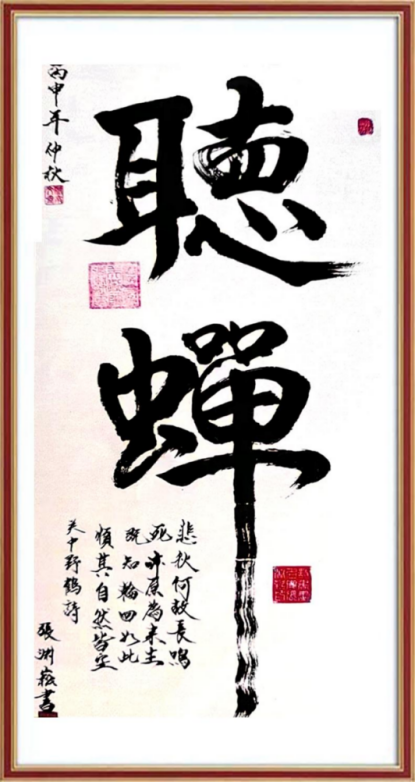 聽
蟬
悲秋何故長鳴
死亦原為
既知輪回如此
順其自然皆空
关中野鶴詩
張淵書
丙申年仲秋